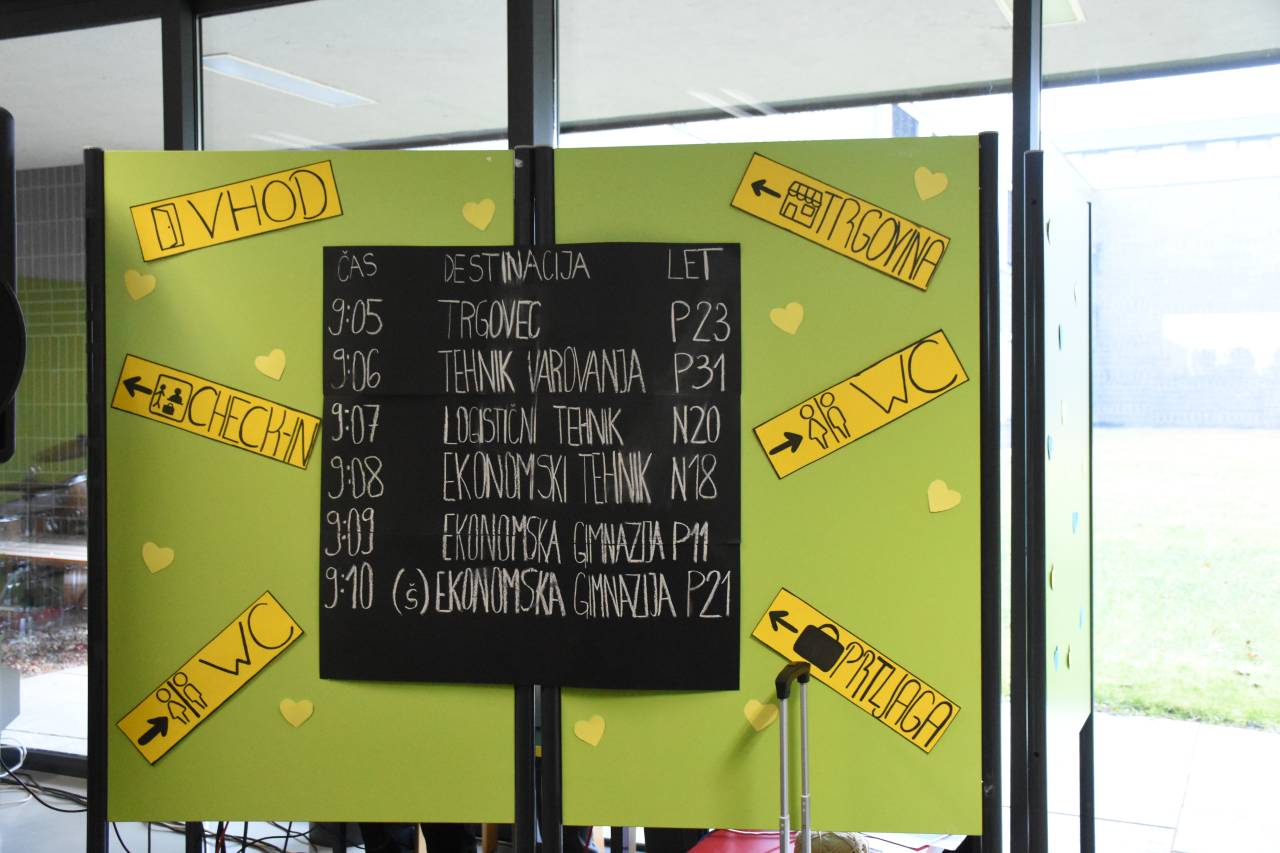 VHOD
TRGOVINA
ČAS DESTINACIJA LET
9:05 TRGOVEC P23
9:06 TEHNIK VAROVANJA P31
9:07 LOGISTIČNI TEHNIK N20
9:08 EKONOMSKI TEHNIK N18
9:09 EKONOMSKA GIMNAZIJA P11
9:10 (Š) EKONOMSKA GIMNAZIJA P21
CHECK-IN
WC
WC
PRTLJAGA